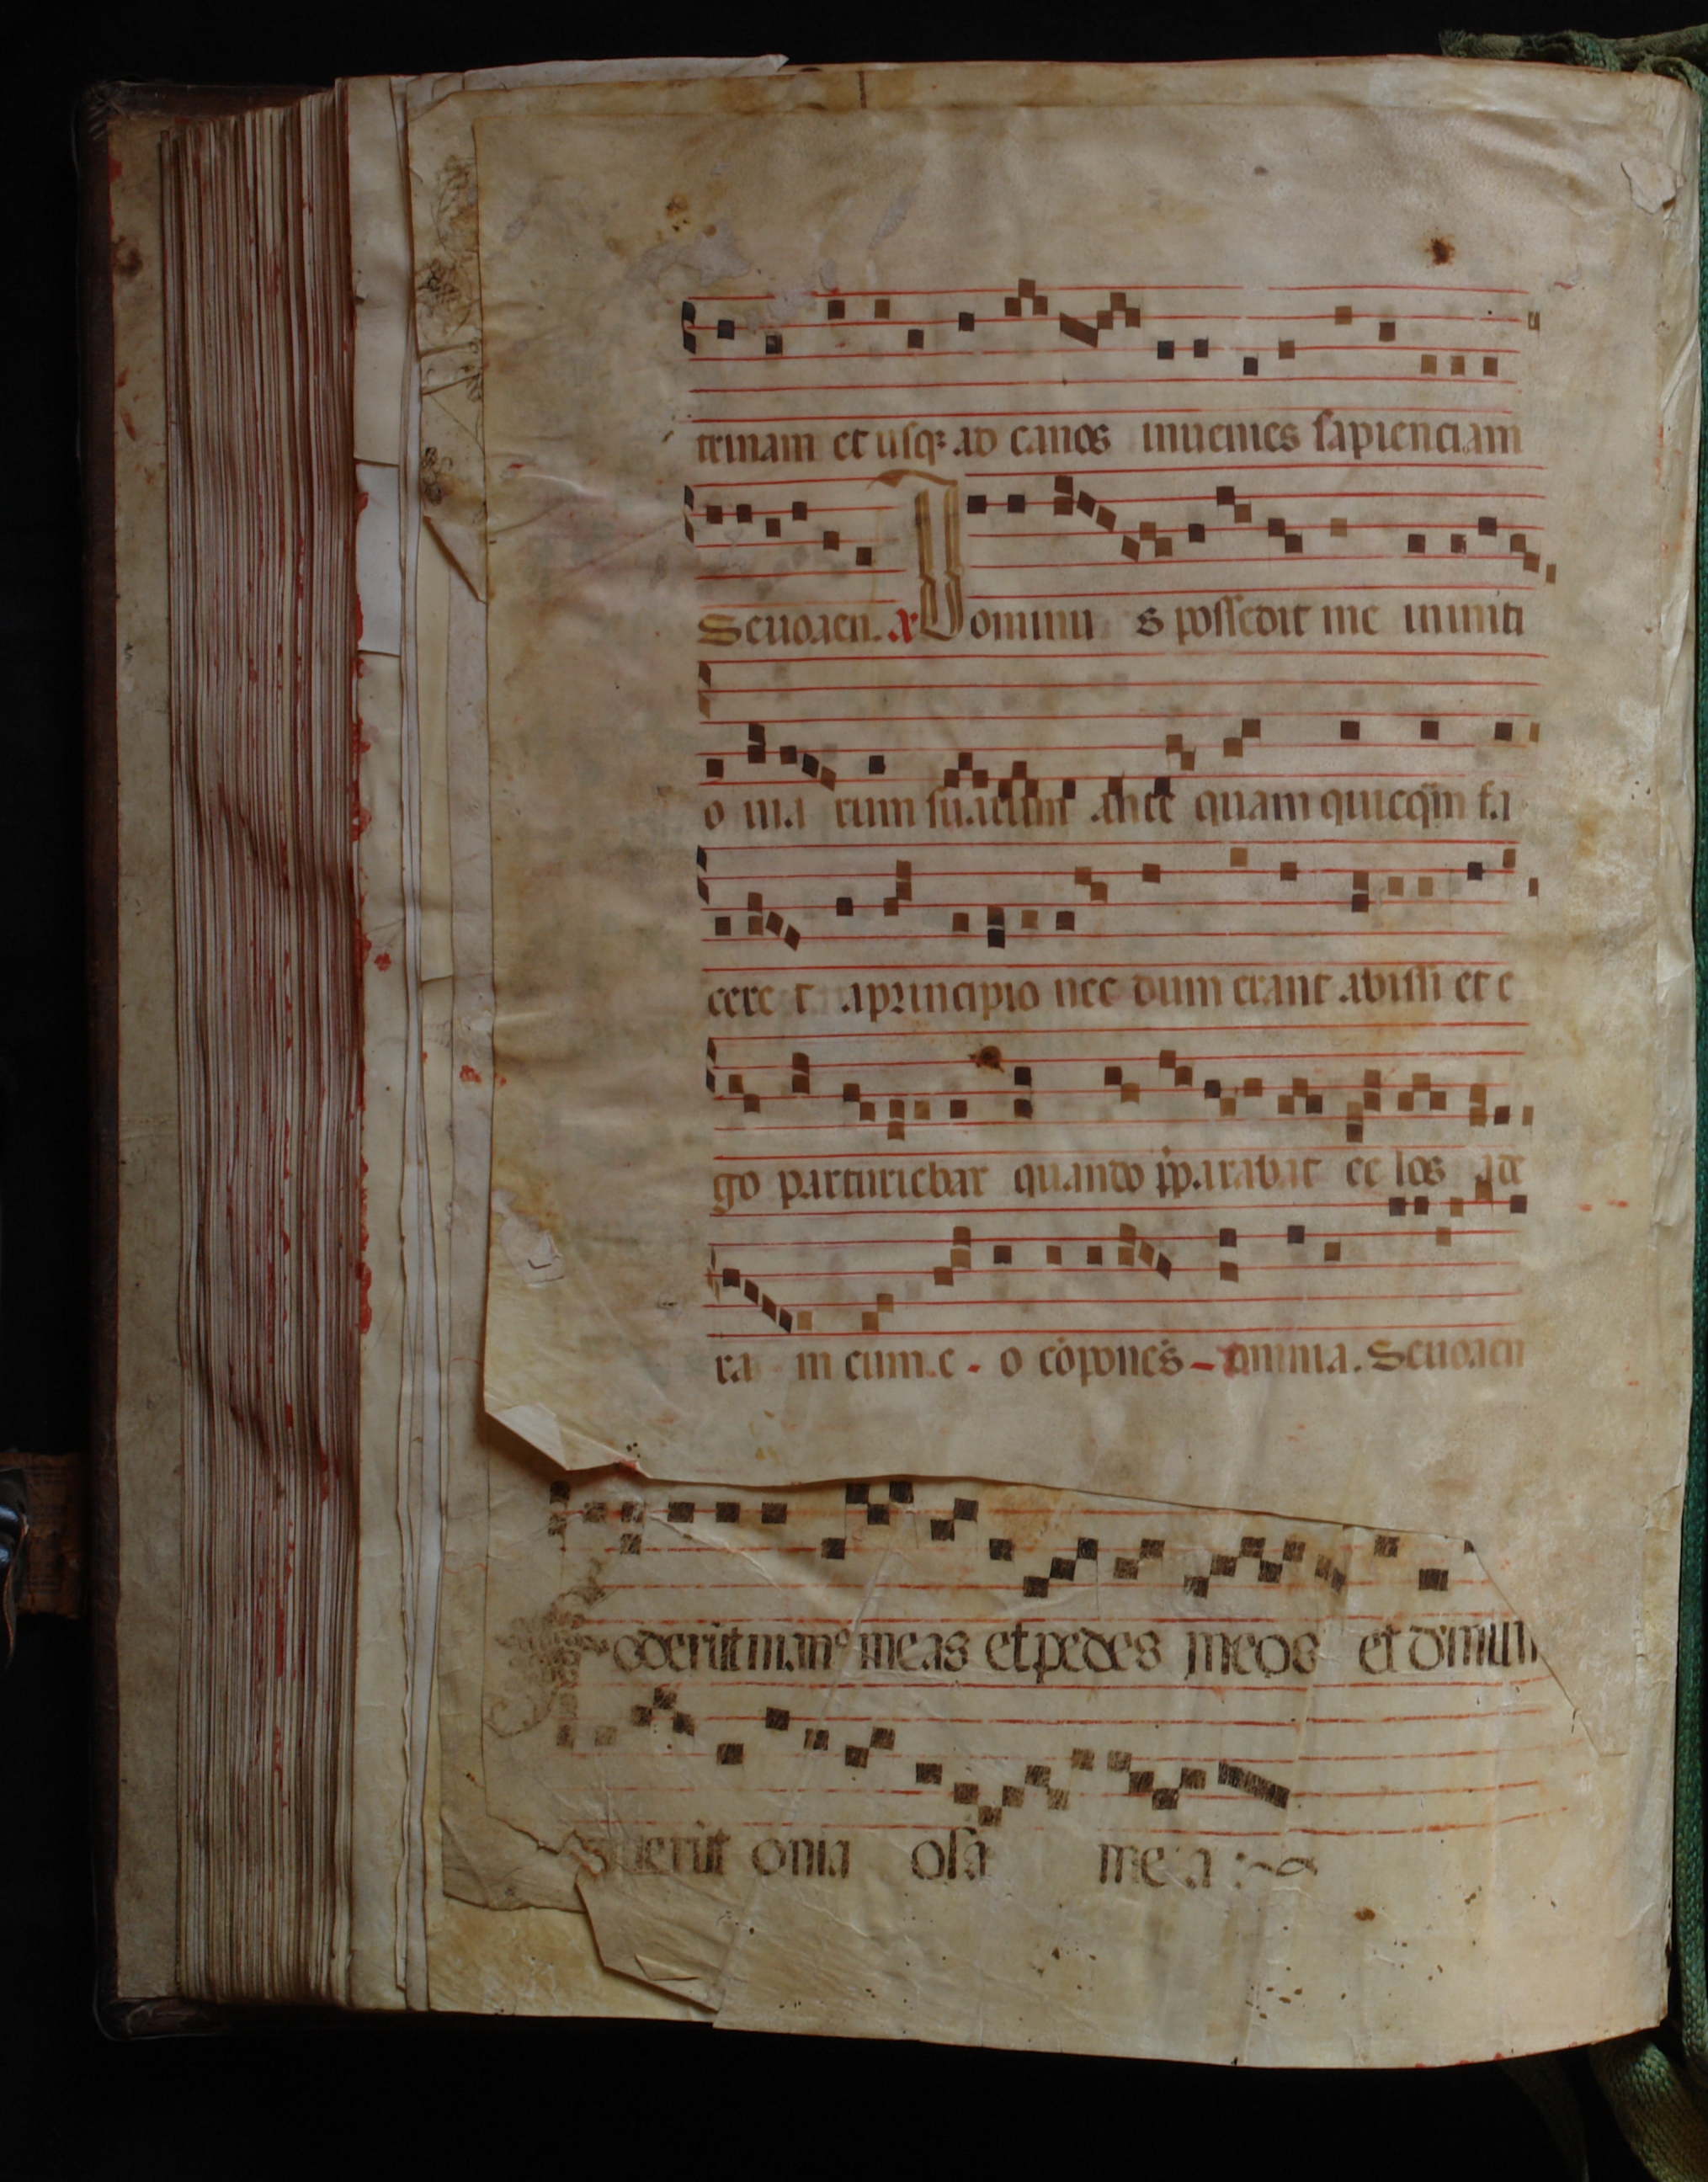 trinam et usqꝫ ad canos inuenies sapienciam
Seuouaen. Dominus possedit me in initi
o uia rum suarum ante quam quicq̄m fa
cere t a principio nec dum erant abissi et e
go parturiebar quando p̄parabat ce los ad e
ra m cum e o cōpones omnia. Seuouaen
oderūt manꝰ meas et pedes meos et
uerūt om̄ia ossa me a